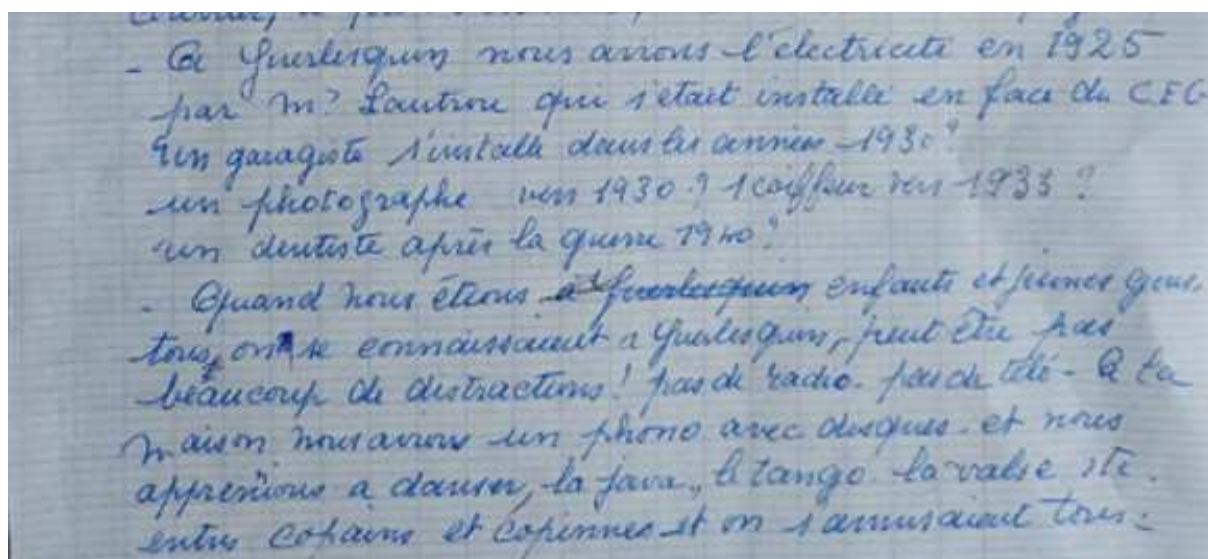 - A Guerlesquin nous avions l'électricité en 1925
par Mr Lautrou qui s'était installé en face du CEG
Un garagiste s'installe dans les années 1930?
un photographe vers 1930? 1 coiffeur vers 1933?
un dentiste après la guerre 1940?
- Quand nous étions à Guerlesquin enfants et jeunes gens,
tous, on se connaissaient a Guerlesquin, peut être pas
beaucoup de distractions! pas de radio. pas de télé - A la
maison nous avions un phono avec disques. et nous
apprenions a danser, la java, le tango la valse etc.
entre copains et copinnes et on s'amusaient tous.